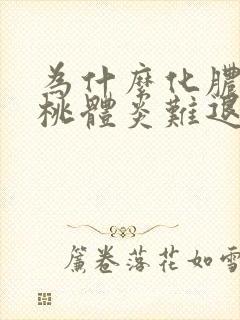 為什麼化膿
桃體炎難退
簾卷落花如雪